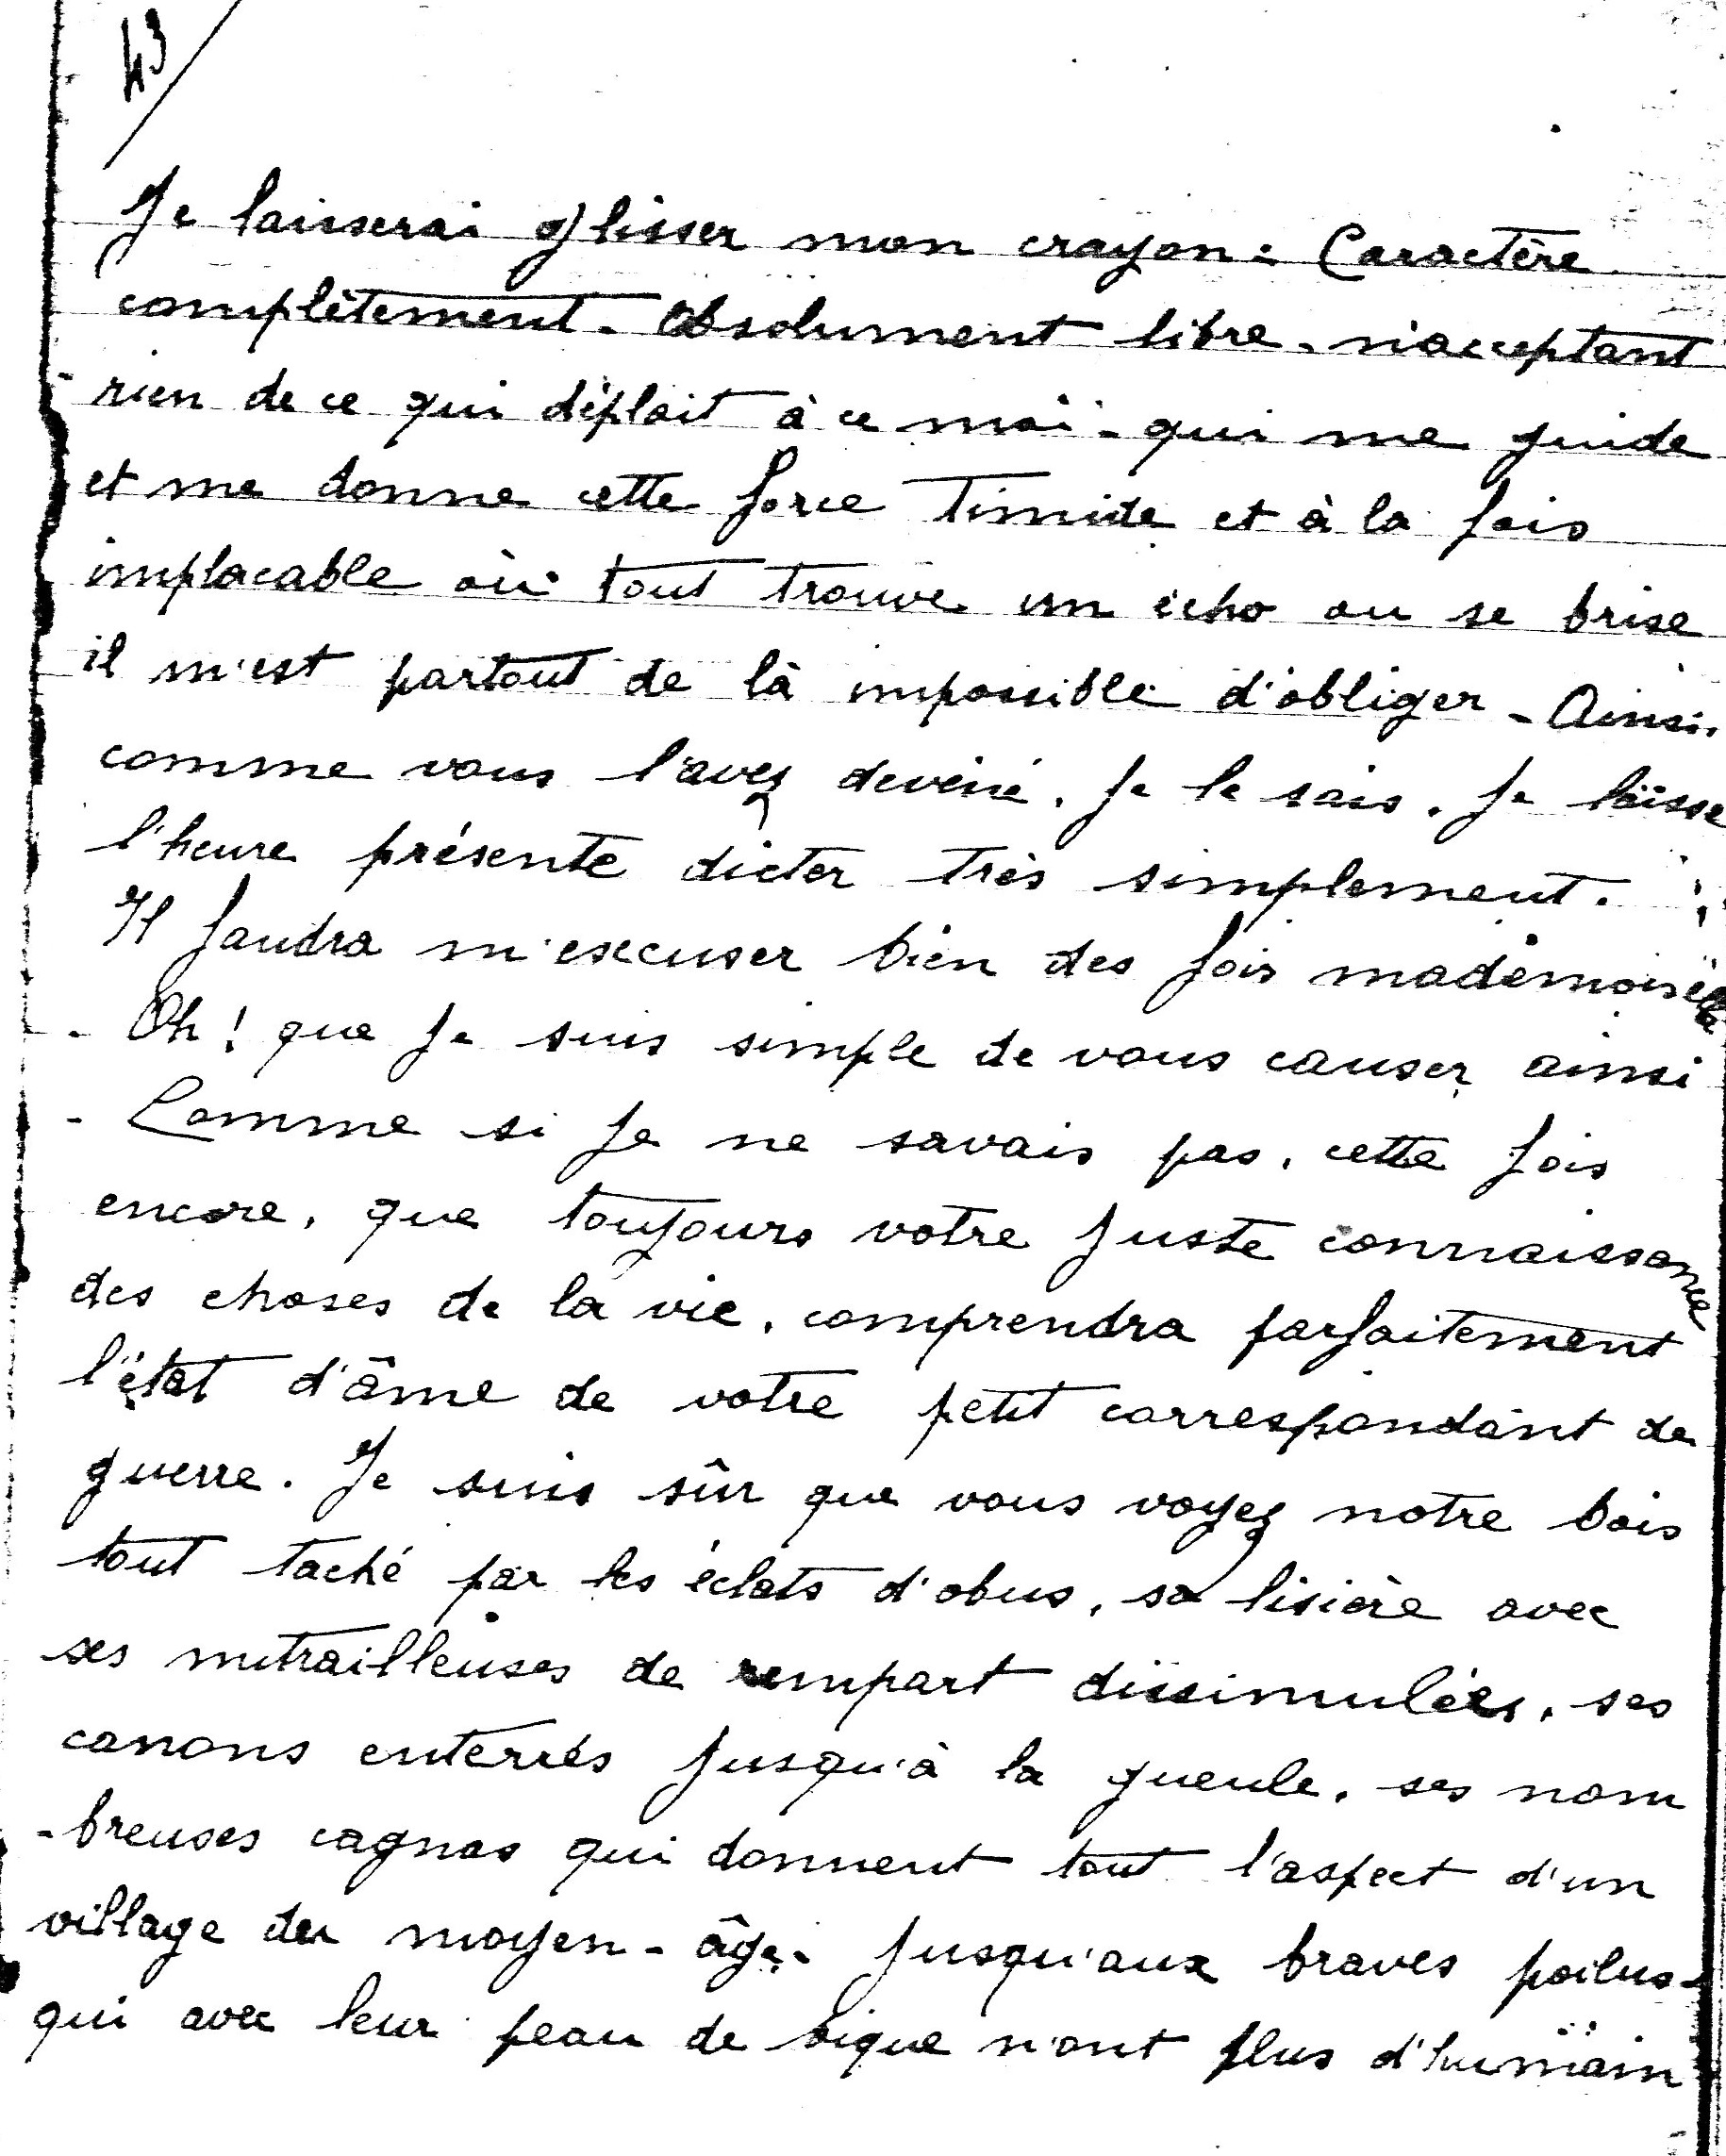 43
Je laisserai glisser mon crayon : Caractère
complètement - absolument libre, n'acceptant
rien de ce qui déplait à ce moi - qui me guide
et me donne cette force timide et à la fois
implacable où tout trouve un écho ou se brise
il m'est partout de là impossible d'obliger - Ainsi
comme vous l'avez deviné. Je le sais. Je laisse
l'heure présente dicter très simplement.
Il faudra m'excuser bien des fois mademoiselle
- Oh ! que Je suis simple de vous causer ainsi
- Comme si Je ne savais pas, cette fois
encore, que toujours votre Juste connaissance
des choses de la vie, comprendra parfaitement
l'état d'âme de votre petit correspondant de
guerre. Je suis sûr que vous voyez notre bois
tout taché par les éclats d'obus, sa lisière avec
ses mitrailleuses de rempart dissimulées, ses
canons enterrés Jusqu'à la gueule, ses nom
-breuses cagnas qui donnent tout l'aspect d'un
village du moyen-âge. Jusqu'aux braves poilus -
qui avec leur peau de bique n'ont plus d'humain